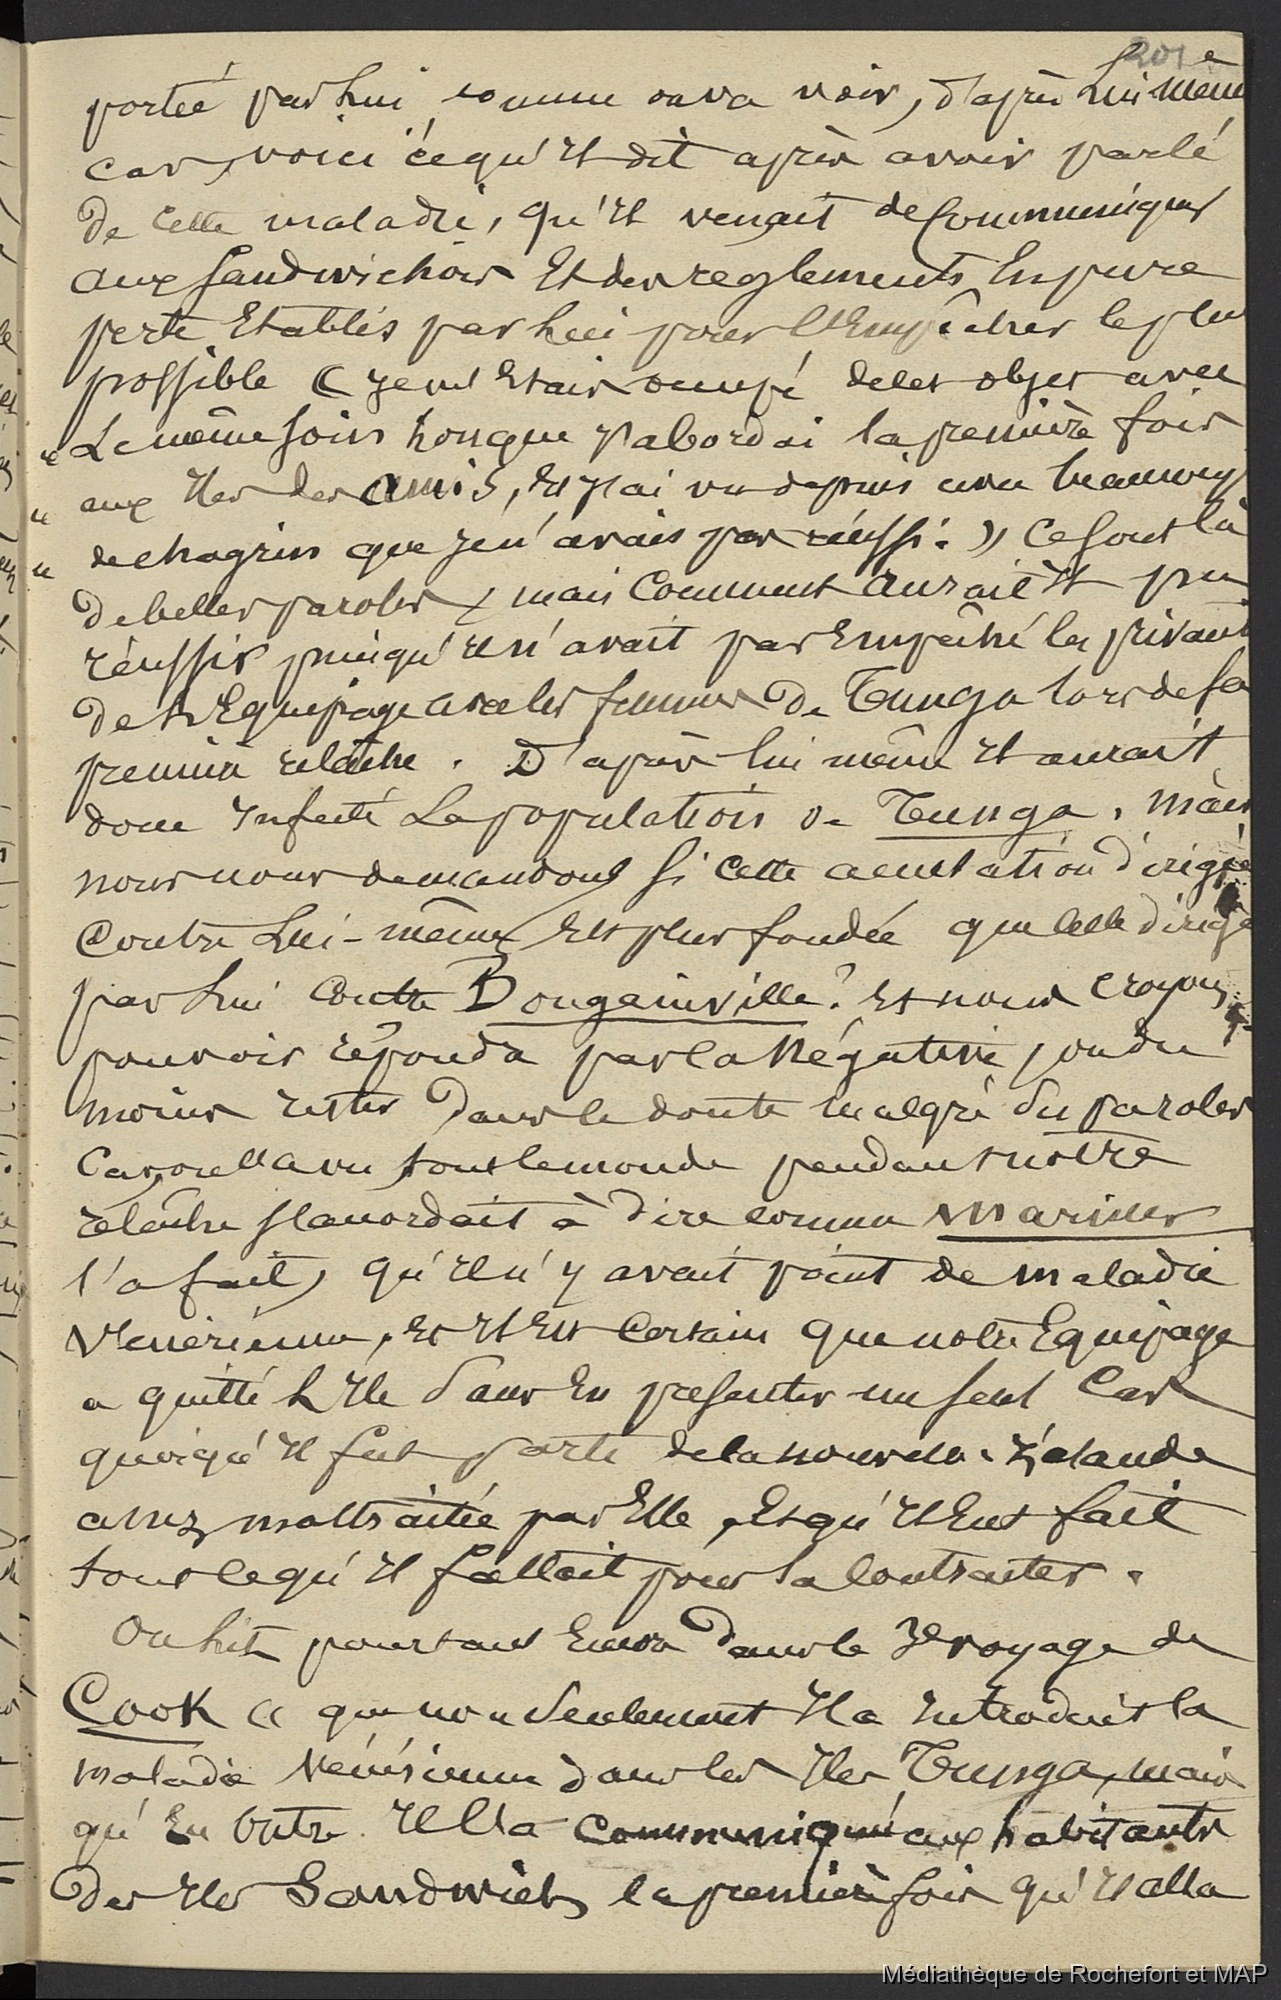 201
portée par Lui comme on va voir, d'après Lui même
car, voici ce qu'il dit après avoir parlé
de cette maladie, qu'il venait de Communiquer
aux Sandwichois Et des reglements En pure
perte Etablis par Lui pour l'Empêcher le plus
possible « je m'Etais occupé de cet objet avec
« Le même soin lorsque j'abordai la première fois
« aux Iles des Amis, Et j'ai vu depuis avec beaucoup
« de chagrin que je n'avais pas réussi. » Ce sont là
de belles paroles, mais Comment aurait il pu
réussir puisqu'il n'avait pas Empêché les
de l'Equipage avec les femmes de Tunga lors de sa
première relâche. D'après lui même il aurait
donc Infecté La population de Tunga. Mais
nous nous demandons si cette accusation dirigée
Contre Lui-même Est plus fondée que celle dirigée
par Lui Contre Bougainville? Et nous croyons
pouvoir répondre par la Négative, ou du
moins rester dans le doute malgré Ses paroles
Car, on l'a vu tout le monde pendant notre
relâche s'accordait à dire comme Mariner
l'a fait, qu'il n'y avait point de maladie
Vénérienne, Et il Est Certain que notre Equipage
a quitté L'Ile Sans En présenter un seul Cas
quoiqu'il fut parti de la nouvelle-Zélande
assez maltraité par Elle, Et qu'il Eut fait
tout ce qu'il fallait pour la Contracter.
On Lit pourtant Encore dans le 3e voyage de
Cook « que non Seulement Il a Introduit la
maladie Vénérienne dans les Iles Tunga, mais
qu'En Outre Il l'a Communiquée aux habitants
des Iles Sandwich la première fois qu'il alla
Médiathèque de Rochefort et MAP